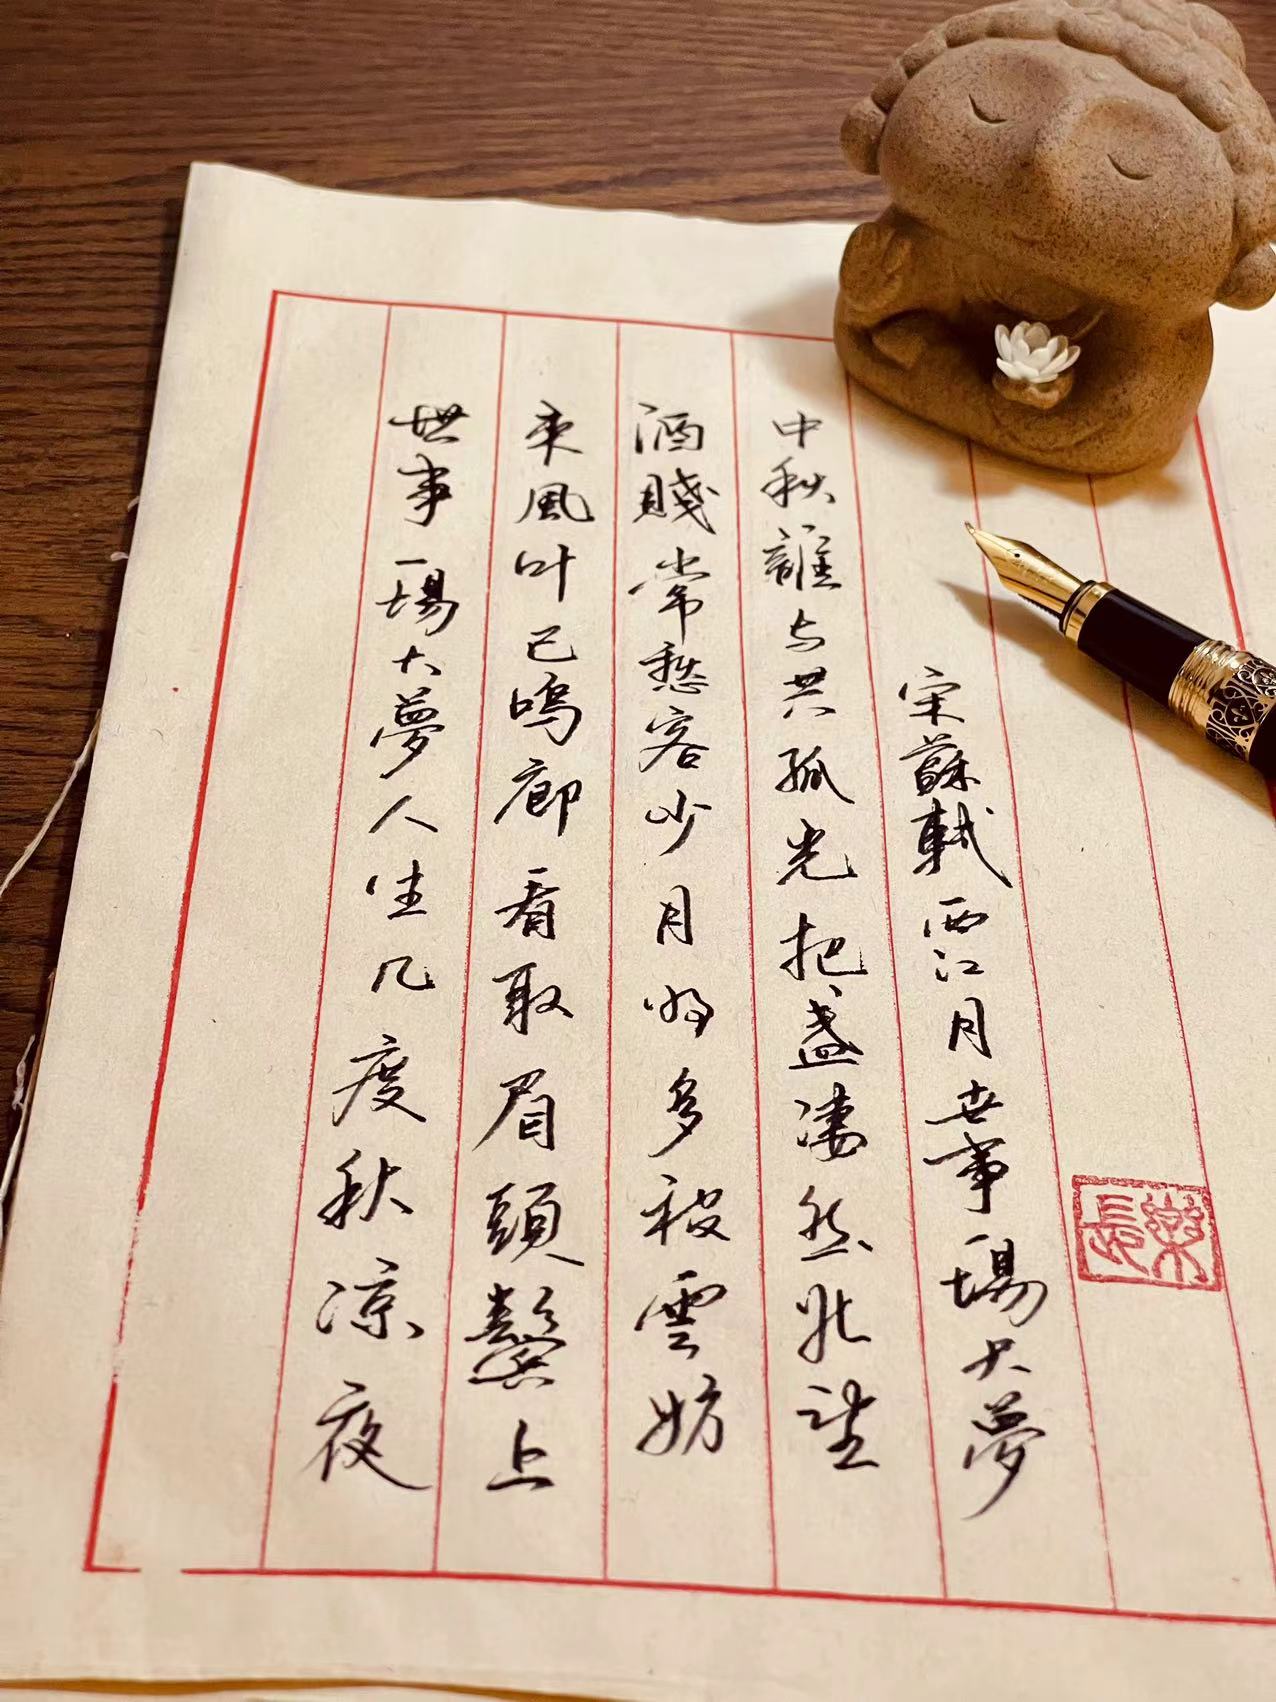 世事一場大夢人生几度秋凉夜
来風叶已鳴廊看取眉頭鬢上
酒賤常愁客少月好多被雲妨
中秋誰与共孤光把盏凄然北望
宋蘇軾西江月世事一場大夢
長樂